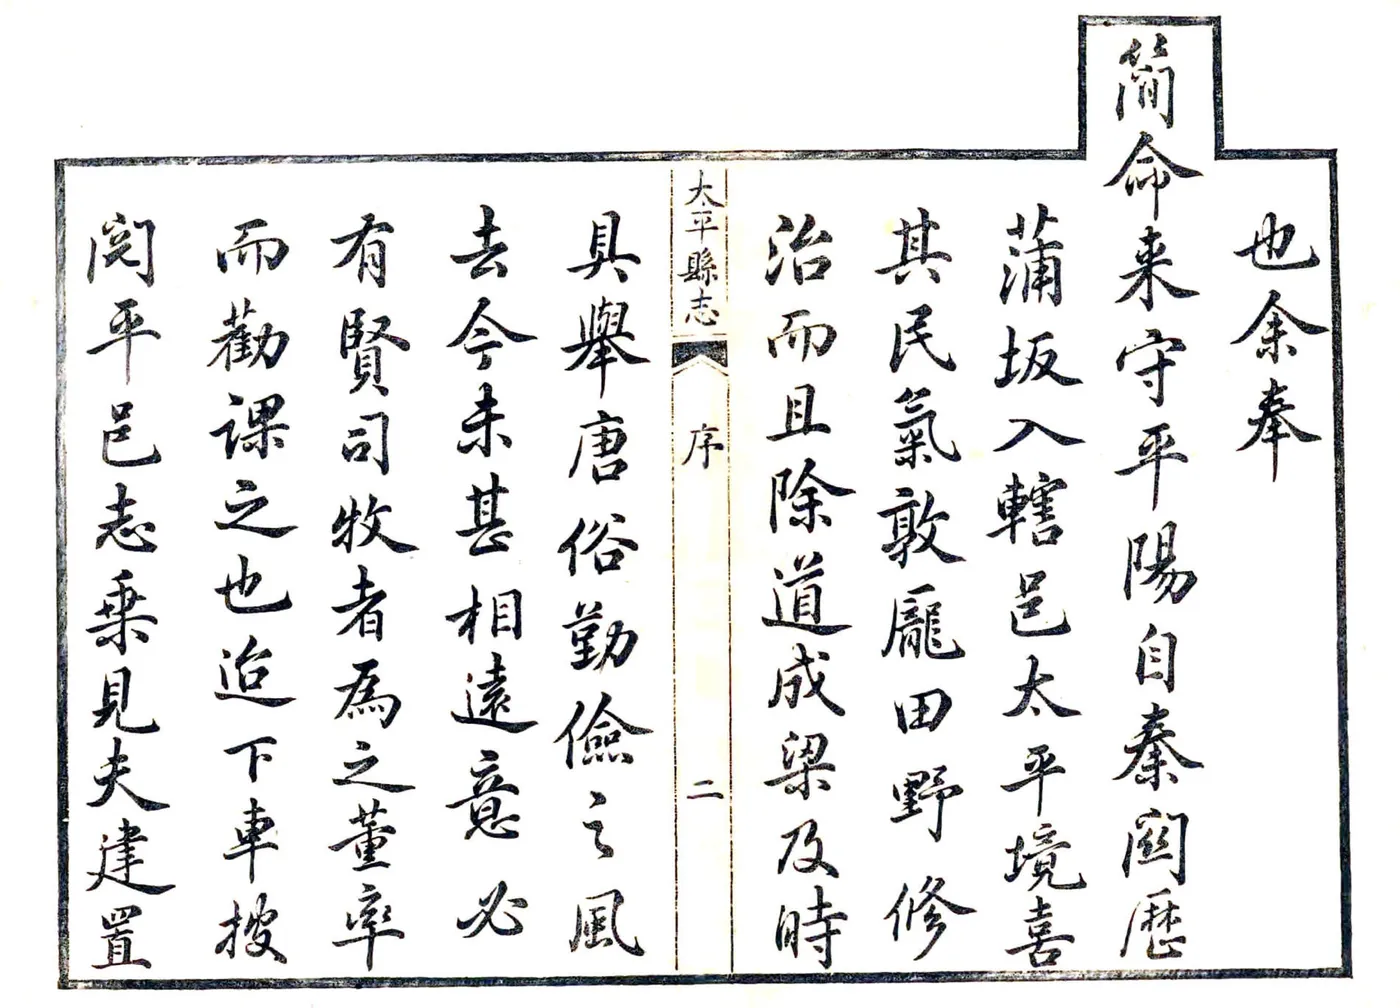 也余奉
簡命来守平陽自秦關歷
蒲坂入轄邑太平境喜
其民氣敦龐田野修
治而且除道成梁及時
太平縣志
序
二
具舉唐俗勤儉之風
去今未甚相遠意必
有賢司牧者為之董率
而勸課之也迨下車披
閱平邑志乗見夫建置